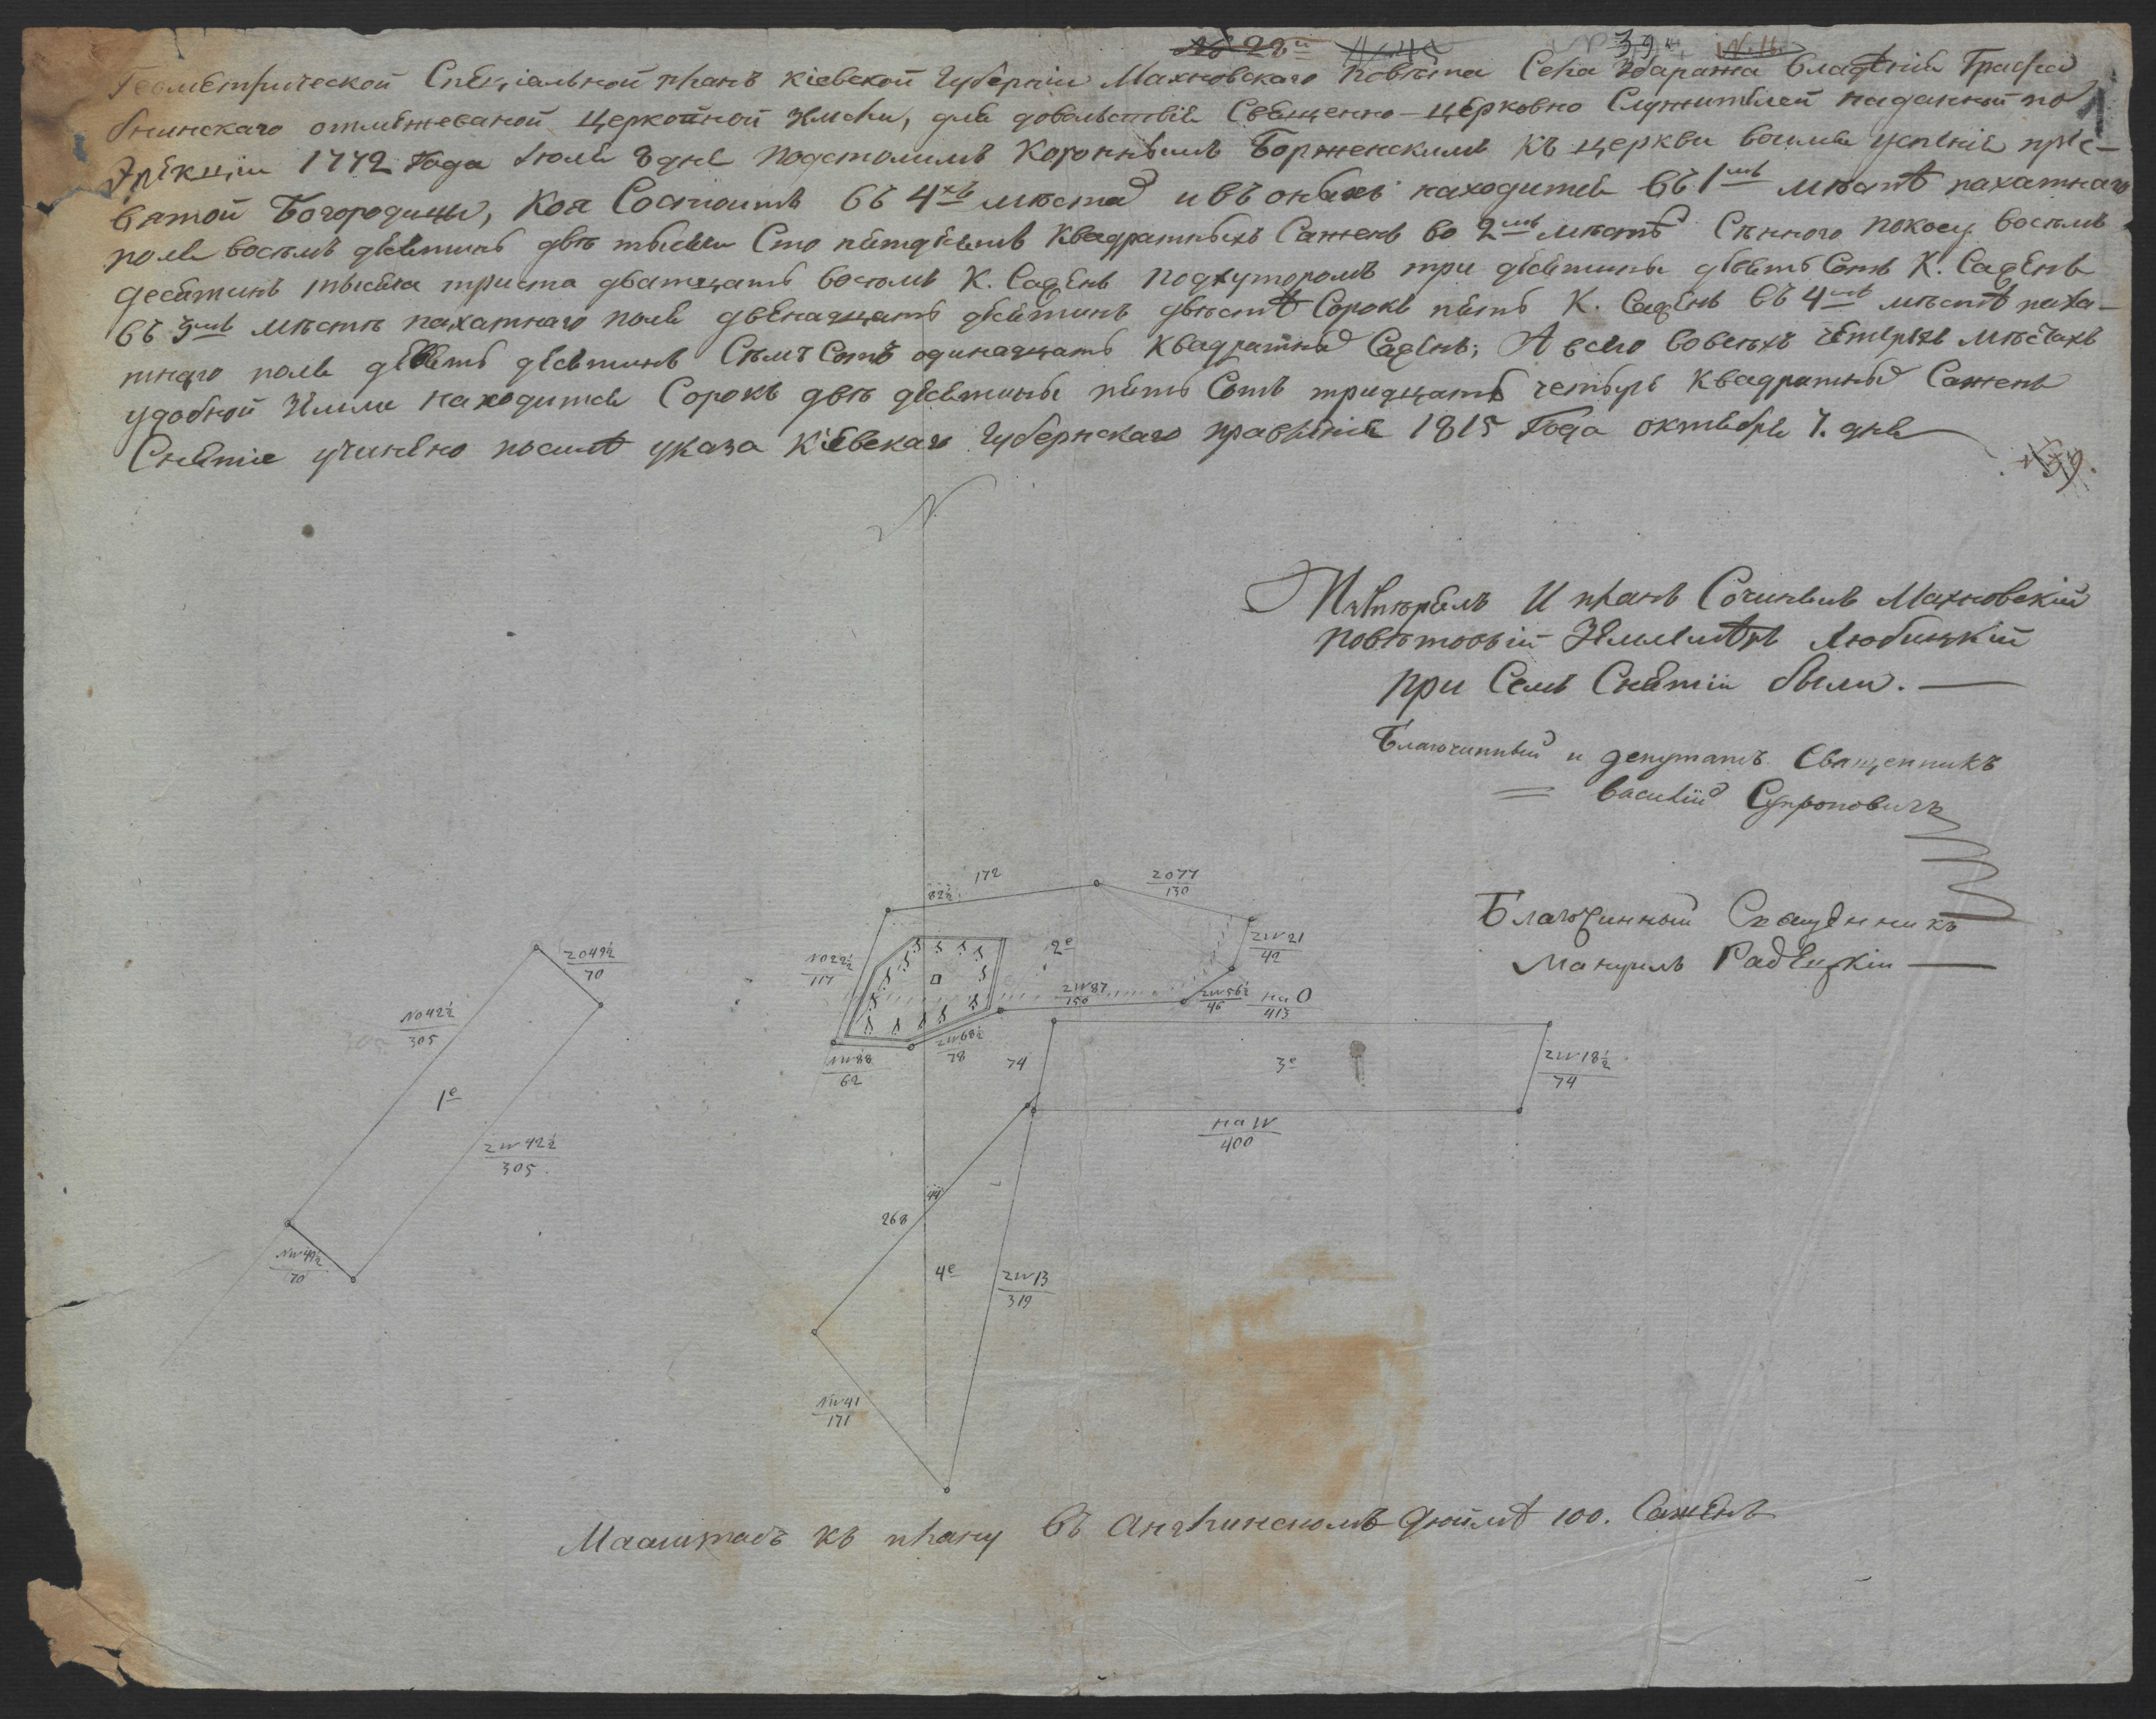 № 28й № 39й
Геометрической Специальной планъ Кіевской Губерніи Махновского Повѣта Села Збаража владѣнія Графа
отмежеваной церковной земли, для довольствія Свещенно-церковно Служителей наданной по
Эрекціи 1772 Года Іюля 8 дня Подстолимъ Короннымъ Борженскимъ къ церкви во имя успенія прес-
вятой Богородицы, Коя Состоитъ въ 4хъ мѣста и въ оныхъ находится въ 1мъ мѣстѣ пахатнаго
поля восемъ десятинъ двѣ тысячи Сто пятдесятъ Квадратныхъ Саженъ во 2мъ мѣстѣ Сѣнного покосу восемъ
десятинъ тысяча триста дватцать восемъ К. Саженъ подхуторомъ три десятины девять Сотъ К. Саженъ
въ 3мъ мѣстѣ пахатнаго поля двенадцать десятинъ двѣстѣ Сорокъ пять К. Саженъ въ 4мъ мѣстѣ паха-
тнаго поля девять десятинъ Семъ Сотъ одинадцать Квадратны Саженъ; А всего вовсѣхъ четырехъ мѣстахъ
удобной Земли находится Сорокъ двѣ десятины пять Сотъ тридцать четырѣ Квадратны Сажень
Снятіе учинено посилѣ указа Кіевскаго Губернскаго правленія 1815 Года октября 7. дня
№ 39.
N.
И планъ Сочинялъ Махновскій
повѣтовый Землемѣръ Любицкій
при Семъ Снятіи были.
Благочинный и депутатъ Священникъ
Василій Супроновичъ
Благочинный Священникъ
Мануилъ Радецкій
172
82½
2077
130
ZO49½
70
NO22½
117
2е
ZW21
42
NO42½
305
305
ZW87
150
ZW56½
46
на O
413
ZW68½
78
NW88
62
74
3е
ZW18½
74
1е
на W
400
ZW42½
305
44
268
NW49½
70
4е
ZW13
319
NW41
171
Мааштабъ къ плану въ Англинскомъ дюймѣ 100. Саженъ